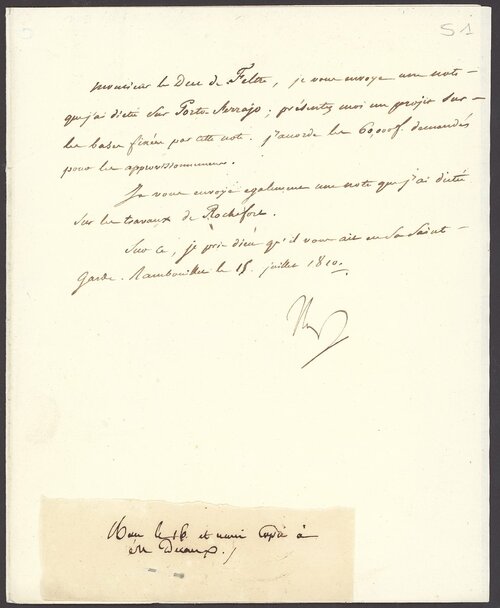 S 1
Monsieur le Duc de Feltre, je vous envoye une note
que j'ai dictée sur Porto Ferrajo; présentez moi un projet sur
les bases fixées par cette note. j'accorde les 60,000f. demandés
pour les approvisionnemens.
Je vous envoye egalement une note que j'ai dictée
sur les travaux de Rochefort.
Sur ce, je prie dieu qu'il vous ait en Sa Sainte
Garde. Rambouillet le 15. juillet 1810.
Np
le 16 et copie à
Mr Decaux